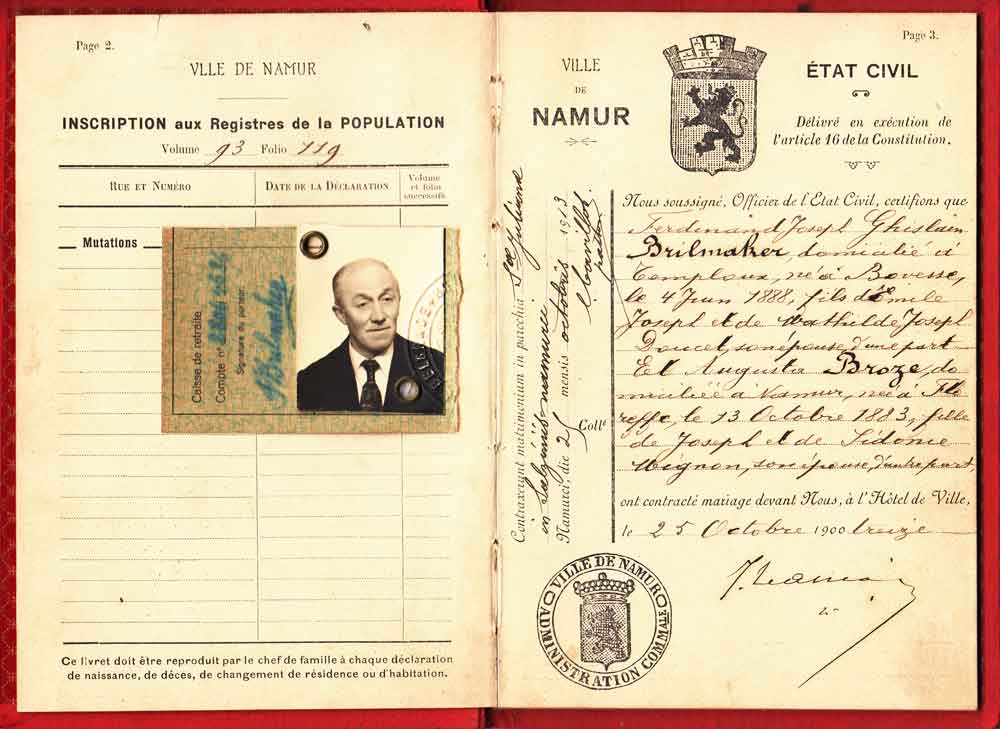 Page 2.
VLLE DE NAMUR
INSCRIPTION aux Registres de la POPULATION
Volume 93 Folio 119
RUE ET NUMÉRO
DATE DE LA DÉCLARATION
Volume
et folio
successifs
Mutations
Caisse de retraite
Compte n°
Signature du porteur
Brilmaker
Ce livret doit être reproduit par le chef de famille à chaque déclaration
de naissance, de décès, de changement de résidence ou d'habitation.
Page 3.
VILLE
DE
NAMUR
ÉTAT CIVIL
Délivré en exécution de
l'article 16 de la Constitution.
Contraxerunt matrimonium in parœchia Stae Julianae
in Salzinnis-namurci
Namurci, die 25 mensis octobris 1913
Collt
Nous soussigné, Officier de l'État Civil, certifions que
Ferdinand Joseph Ghislain
Brilmaker, domicilié à
Temploux, né à Bovesse,
le 4 Juin 1888, fils d'Emile
Joseph et de Mathilde Joseph
Doucet, son épouse, d'une part
Et Augusta Broze, do
miciliée à Namur, née à Flo
reffe, le 13 Octobre 1883, fille
de Joseph et de Sidonie
Mignon, son épouse, d'autre part,
ont contracté mariage devant Nous, à l'Hôtel de Ville,
le 25 Octobre 1900 treize
VILLE DE NAMUR
ADMINISTRATION COMMALE